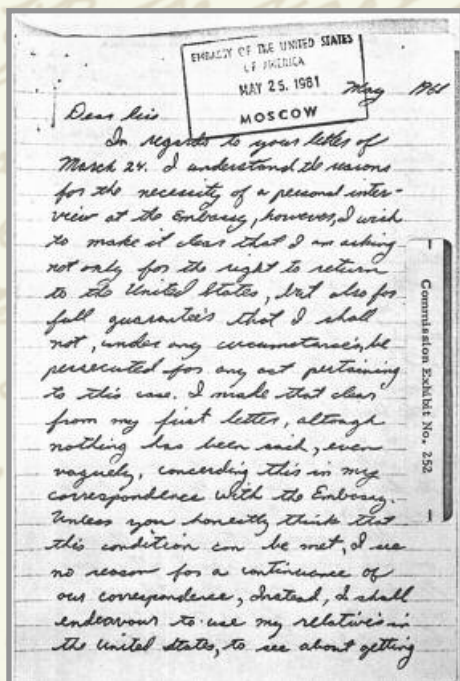 EMBASSY OF THE UNITED STATES
OF AMERICA
MAY 25. 1961
MOSCOW
May 1961
Dear Sirs
In regards to your letter of
March 24. I understand the reasons
for the necessity of a personal inter-
view at the Embassy, however, I wish
to make it clear that I am asking
not only for the right to return
to the United States, but also for
full guarantee's that I shall
not, under any circumstance's, be
persecuted for any act pertaining
to this case. I made that clear
from my first letter, although
nothing has been said, even
vaguely, concerding this in my
correspondence with the Embassy.
Unless you honestly think that
this condition can be met, I see
no reason for a continuance of
our correspondence, Instead, I shall
endeavour to use my relatives in
the United States, to see about getting
Commission Exhibit No. 252